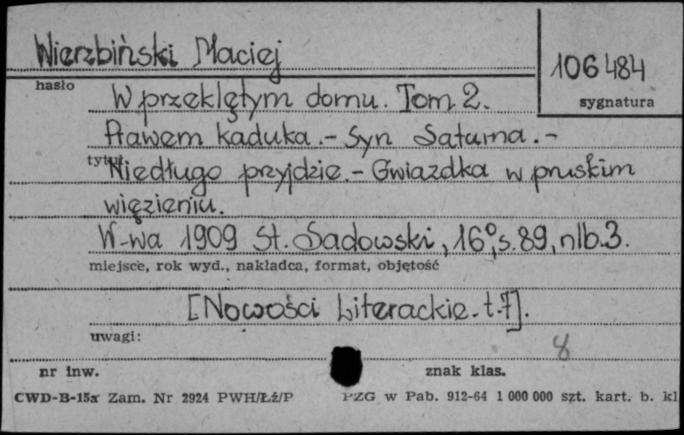 Wierzbiński Maciej
106484
hasło
sygnatura
W przeklętym domu. Tom 2.
Prawem kaduka. - Syn Saturna. -
tytuł
Niedługo przyjdzie. - Gwiazdka w pruskim
więzieniu.
W-wa 1909 St. Sadowski, 16°, s. 89, nlb. 3.
miejsce, rok wyd., nakładca, format, objętość
[Nowości Literackie. t. 7].
uwagi:
8
nr inw.
znak klas.
CWD-B-15x Zam. Nr 2924 PWH/Łź/P
PZG w Pab. 912-64 1 000 000 szt. kart. b. kl